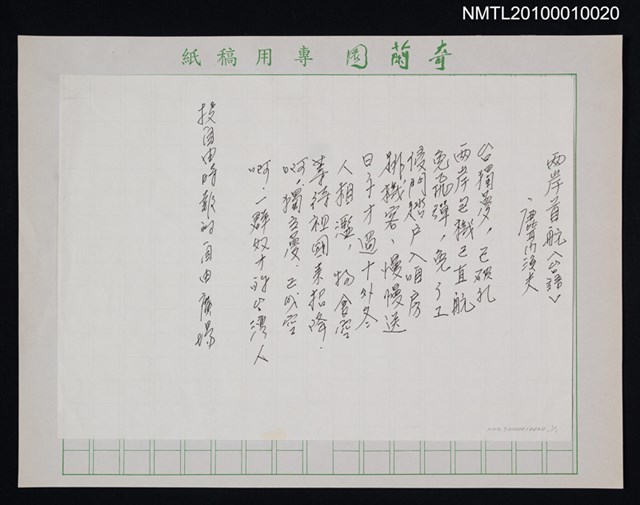 NMTL20100010020
奇蘭園專用稿紙
兩岸首航(台語)
台獨夢,已破孔
兩岸包機已直航
免飛彈,免了工
侵門踏戶入咱房
綁機客、慢慢送
日子才過十外冬
人相濫,物會空
等待祖國來招降.
啊!獨立夢.已成空
啊.一群奴才的台灣人
投自由時報的自由廣場